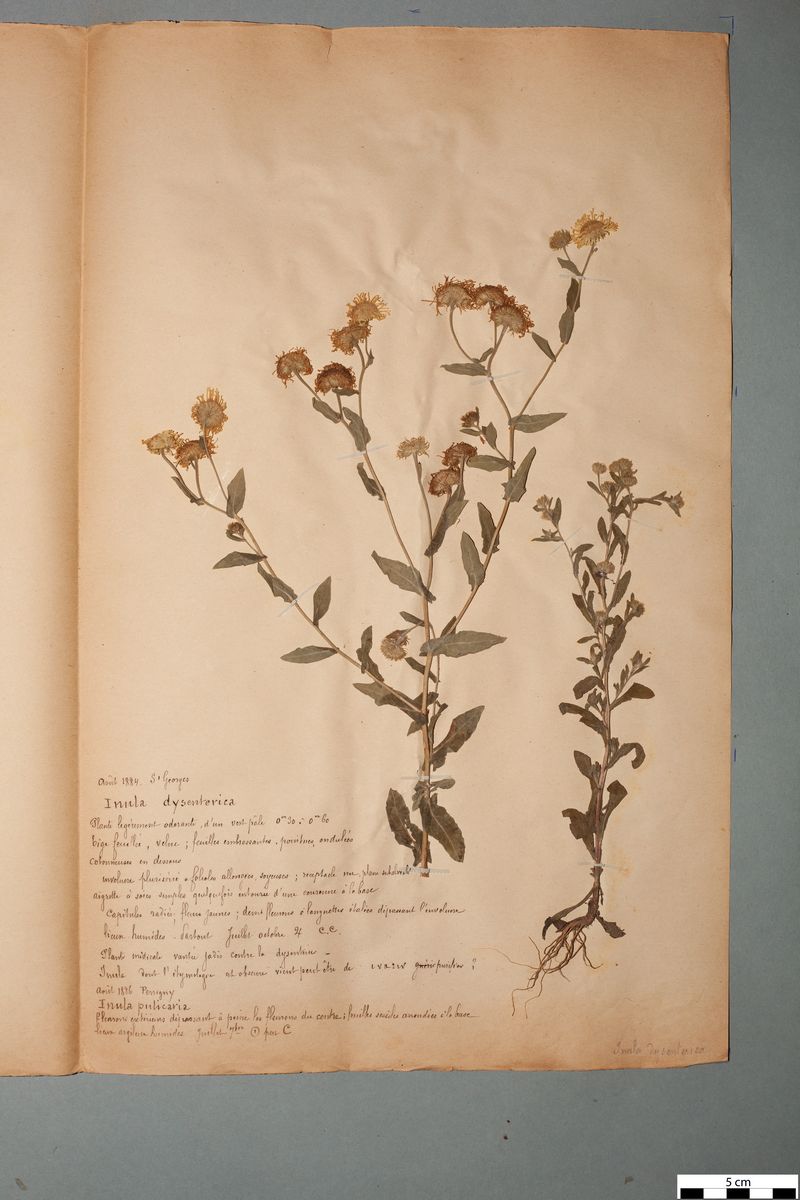 Août 1884. St Georges
Inula dysenterica
Plante légèrement odorante, d'un vert pâle 0m30 - 0m60
Tige feuillée, velue ; feuilles embrassantes, pointues, ondulées
cotonneuses en dessous
involucre plurisérié à folioles allongées, soyeuses ; réceptacle nu, plan
aigrette à soies simples quelquefois entourée d'une couronne à la base
Capitules radiés, fleurs jaunes ; demi fleurons à languettes étalées dépassant l'involucre
lieux humides. Partout Juillet octobre ♃ C.C.
Plante médicale vantée jadis contre la dysenterie -
Inule dont l'étymologie est obscure vient peut être de ?
Août 1886 Perigny
Inula pulicaria
fleurons extérieurs dépassant à peine les fleurons du centre ; feuilles sessiles arrondies à la base
lieux argileux humides Juillet 7bre ⊙ peu C
Inula dysenterica
5 cm